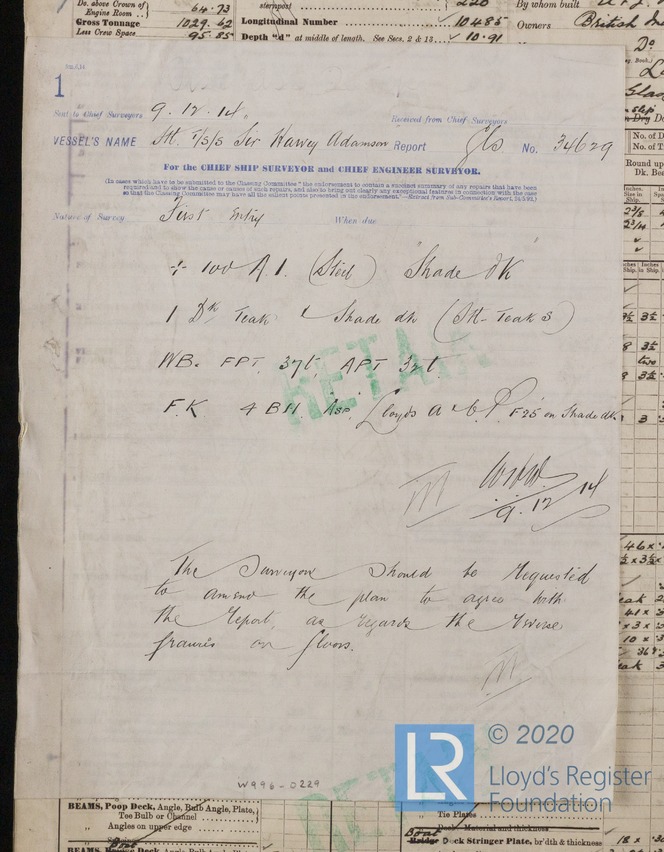 Do. above Crown of Engine Room .. } 64.73
Gross Tonnage 1029.62
Less Crew Space 95.85
Longitudinal Number 10485
Depth "d" at middle of length. See Secs. 2 & 13 10.91
By whom built
Owners British
Do
1
Sent to Chief Surveyors 9.12.14
Received from Chief Surveyors
VESSEL'S NAME St. T/S/S Sir Harvey Adamson Report Gls No. 34629
For the CHIEF SHIP SURVEYOR and CHIEF ENGINEER SURVEYOR.
(In cases which have to be submitted to the Classing Committee "the endorsement to contain a succinct summary of any repairs that have been
required and to show the cause or causes of such repairs, and also to bring out clearly any exceptional features in connection with the case
so that the Classing Committee may have all the salient points presented in the endorsement."—Extract from Sub-Committee's Report, 24/5/93.)
Nature of Survey First Entry When due
÷ 100 A.1. (Steel) "Shade Dk"
1 Dk Teak & Shade dk (St. Teak S)
WB. FPT 37t, APT 32t.
F.K 4 BH Asp. Lloyds A & C.P. F25 on Shade dk
9.12.14
The Surveyors should be requested
to amend the plan to agree with
the Report, as regards the reverse
frames on floors.
RETAIN
W996-0229
LR
© 2020
Lloyd's Register
Foundation
BEAMS, Poop Deck, Angle, Bulb Angle, Plate,
Tee Bulb or Channel
„ Angles on upper edge
Tie Plates
„ Deck Material and thickness
Boat
Bridge Deck Stringer Plate, br'dth & thickness